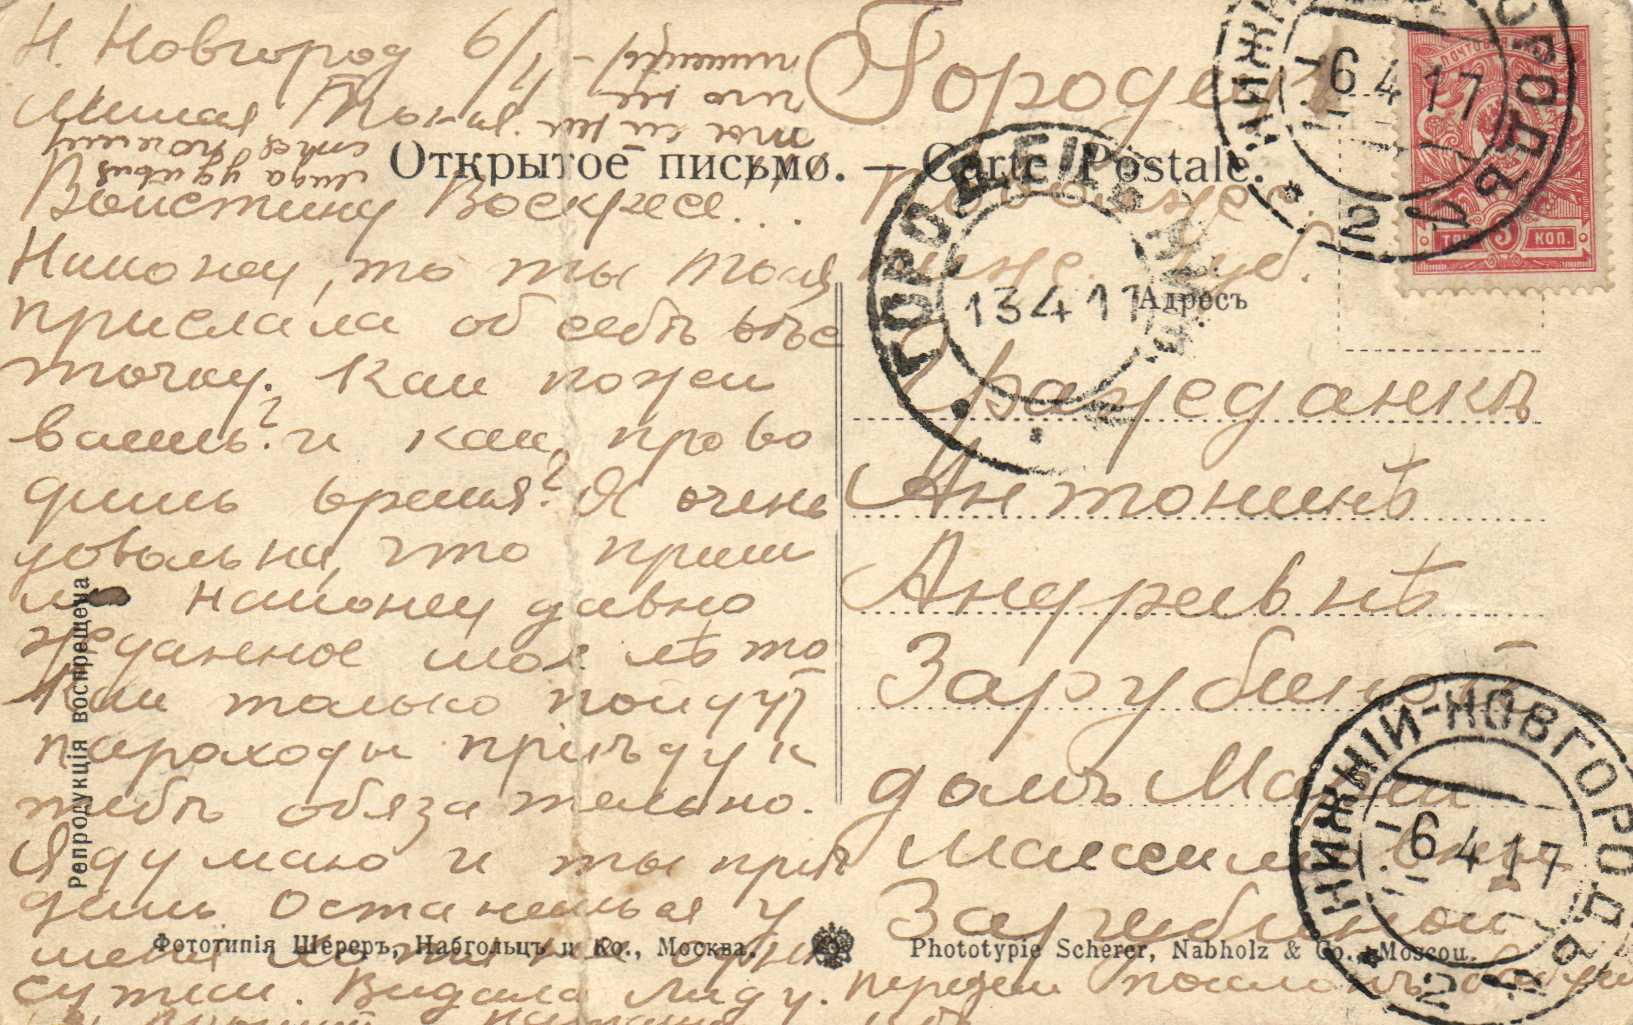 Н. Новгород 6/IV
Милая Тонya.
Воистину Воскресе...
Наконец, то ты Тоня
прислала об себѣ вѣс
точку. Как пожи
ваешь? и как прово
дишь время? Я очень
довольна, что приш
ло наконец давно
жеданное мое лѣто
Как только пойдут
пароходы приѣду к
тибѣ обязательно.
Я думаю и ты приѣ
дишь останешься у
меня
сутки. Видала Лиду.
Лида удивля
ется почему
ты ей ни
чего не
пишешь
Открытое письмо. — Carte Postale.
Адресъ
Городец
Нижег. губ.
Гражеданкѣ
Антонинѣ
Андревнѣ
Зарубиной
домъ Марьи
Максимовны
Зарубиной
Передай поклонъ
НИЖНІЙ-НОВГОРОДЪ
-6 4 17
2
ГОРОДЕЦЪ НИЖЕГ.
13 4 17
НИЖНІЙ-НОВГОРОДЪ
-6 4 17
2
ПОЧТОВАЯ
3
ТРИ КОП.
Репродукція воспрещена
Фототипія Шереръ, Набгольцъ и Ко., Москва.
Phototypie Scherer, Nabholz & Co., Moscou.